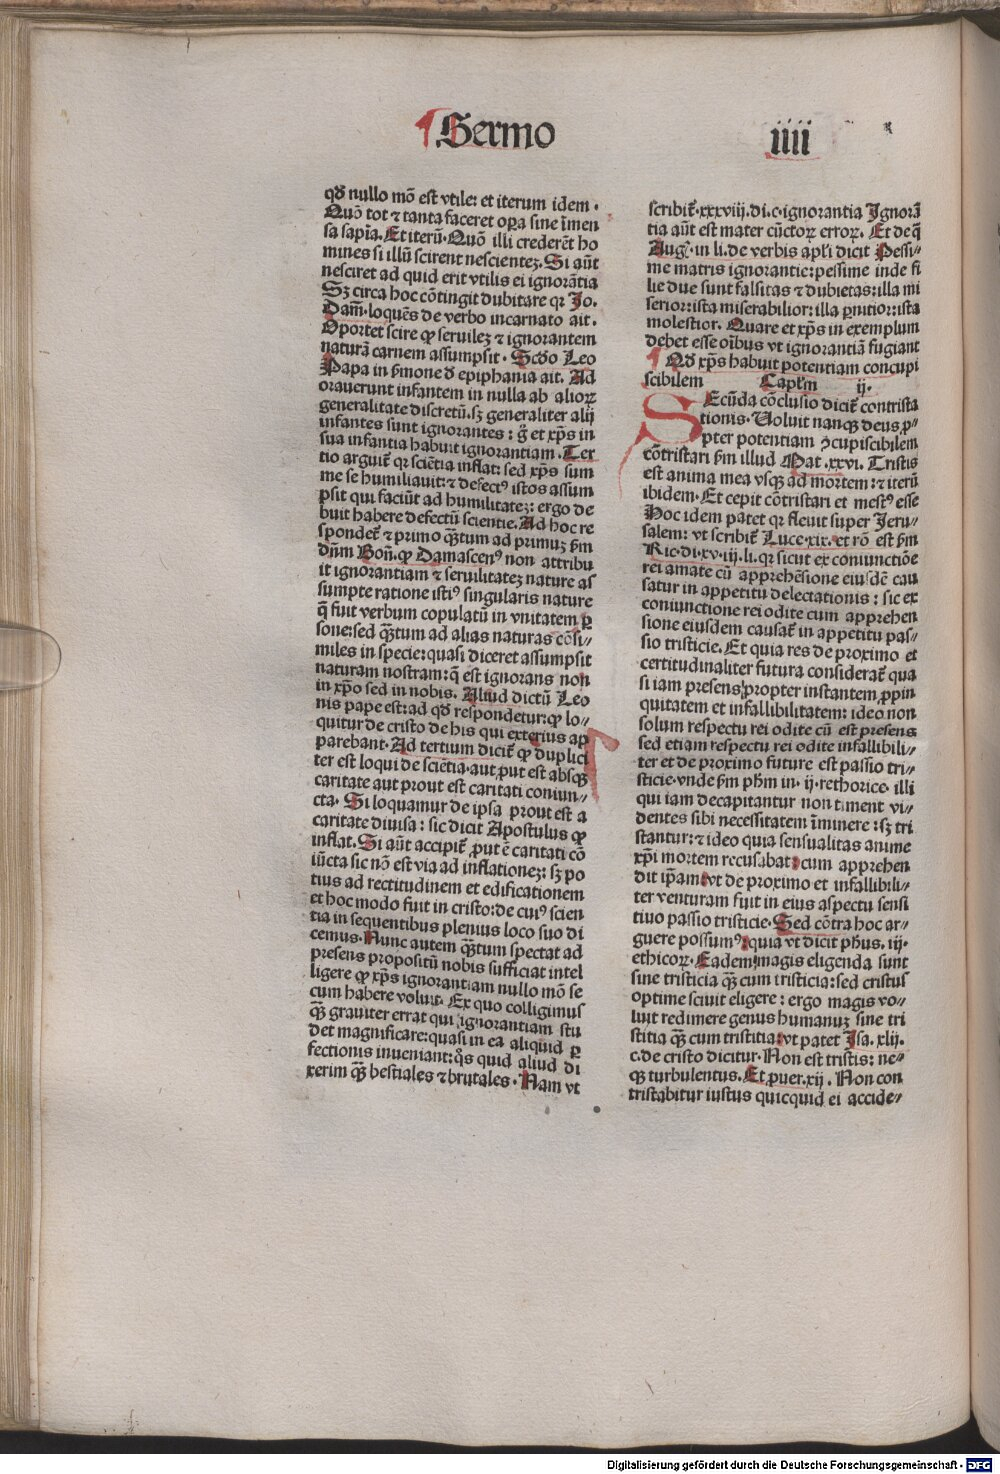 Sermo iiii
qđ nullo mõ est vtile: et iterum idem.
Quõ tot ⁊ tanta faceret oꝑa sine ĩmen
sa sapĩa. Et iterũ. Quõ illi crederẽt ho
mines si illũ scirent nescientez. Si aũt
nesciret ad quid erit vtilis ei ignorãtia
Sꝫ circa hoc cõtingit dubitare qꝛ Jo.
Dam̃. loquẽs de verbo incarnato ait.
Oportet scire ꝙ seruilez ⁊ ignorantem
naturã carnem assumpsit. Scđo Leo
Papa in ẜmone đ epiphania ait. Ad
orauerunt infantem in nulla ab alioꝝ
generalitate discretũ. sꝫ generaliter alij
infantes sunt ignorantes: g̃ et xp̃s in
sua infantia habuit ignorantiam. Ter
tio arguit̃ qꝛ sciẽtia inflat: sed xp̃s sum
me se humiliauit: ⁊ defectꝰ istos assum
psit qui faciũt ad humilitatez: ergo de
buit habere defectũ scientie. Ad hoc re
spondet̃ ⁊ primo qᷓ̃tum ad primuz ẜm
dñm Boñ. ꝙ Damascenꝰ non attribu
it ignorantiam ⁊ seruilitatez nature as
sumpte ratione istiꝰ singularis nature
q̃ fuit verbum copulatũ in vnitatem ꝑ
sone: sed qᷓ̃tum ad alias naturas cõsi⸗
miles in specie: quasi diceret assumpsit
naturam nostram: q̃ est ignorans non
in xp̃o sed in nobis. Aliud dictũ Leo
nis pape est: ad qđ respondetur: ꝙ lo⸗
quitur de cristo de his qui exterius ap
parebant. Ad tertium dicit̃ ꝙ duplici
ter est loqui de sciẽtia. aut ꝓut est absqꝫ
caritate aut prout est caritati coniun⸗
cta. Si loquamur de ipsa prout est a
caritate diuisa: sic dicit Apostulus ꝙ
inflat. Si aũt accipit̃ ꝓut ẽ caritati cõ
iũcta sic nõ est via ad inflationez: sꝫ po
tius ad rectitudinem et edificationem
et hoc modo fuit in cristo: de cuiꝰ scien
tia in sequentibus plenius loco suo di
cemus. Nunc autem qᷓ̃tum spectat ad
presens propositũ nobis sufficiat intel
ligere ꝙ xp̃s ignorantiam nullo mõ se
cum habere voluit. Ex quo colligimus
qᷓ̃ grauiter errat qui ignorantiam stu
det magnificare: quasi in ea aliquid ꝑ
fectionis inueniant: q̃s quid aliud di
xerim qᷓ̃ bestiales ⁊ brutales. Nam vt
scribit̃. xxxviii. di. c. ignorantia Ignorã
tia aũt est mater cũctoꝝ erroꝝ. Et de q̃
Aug̃. in li. de verbis apl̃i dicit Pessi⸗
me matris ignorantie: pessime inde fi
lie due sunt falsitas ⁊ dubietas: illa mi
serior: ista miserabilior: illa ꝑnitior: ista
molestior. Quare et xp̃s in exemplum
debet esse oĩbus vt ignorantiã fugiant
Qđ xp̃s habuit potentiam concupi
scibilem Capl̃m ii.
SEcũda cõclusio dicit̃ contrista
tionis. Uoluit nanqꝫ deus ꝓ⸗
pter potentiam ꝯcupiscibilem
cõtristari ẜm illud Mat. xxvi. Tristis
est anima mea vsqꝫ ad mortem: ⁊ iterũ
ibidem. Et cepit cõtristari et mestꝰ esse
Hoc idem patet qꝛ fleuit super Jeru⸗
salem: vt scribit̃ Luce. xix. et rõ est ẜm
Ric. di. xv. iij. li. qꝛ sicut ex coniunctiõe
rei amate cũ apprehẽsione eiusdẽ cau
satur in appetitu delectationis: sic ex
coniunctione rei odite cum apprehen
sione eiusdem causat̃ in appetitu pas⸗
sio tristicie. Et quia res de proximo et
certitudinaliter futura considerat̃ qua
si iam presens propter instantem ꝓpin
quitatem et infallibilitatem: ideo non
solum respectu rei odite cũ est presens
sed etiam respectu rei odite infallibili⸗
ter et de proximo future est passio tri⸗
sticie. vnde ẜm ph̃m in. ij. rethorice. illi
qui iam decapitantur non timent vi⸗
dentes sibi necessitatem ĩminere: sꝫ tri
stantur: ⁊ ideo quia sensualitas anime
xp̃i mortem recusabat: cum apprehen
dit ip̃am: vt de proximo et infallibili⸗
ter venturam fuit in eius aspectu sensi
tiuo passio tristicie. Sed cõtra hoc ar⸗
guere possumꝰ: quia vt dicit ph̃us. iij.
ethicoꝝ. Eadem magis eligenda sunt
sine tristicia qᷓ̃ cum tristicia: sed cristus
optime sciuit eligere: ergo magis vo⸗
luit redimere genus humanuz sine tri
stitia qᷓ̃ cum tristitia: vt patet Isa. xlij.
c. de cristo dicitur. Non est tristis: ne⸗
qꝫ turbulentus. Et ꝓuer. xij. Non con
tristabitur iustus quicquid ei accide⸗
Digitalisierung gefördert durch die Deutsche Forschungsgemeinschaft - DFG